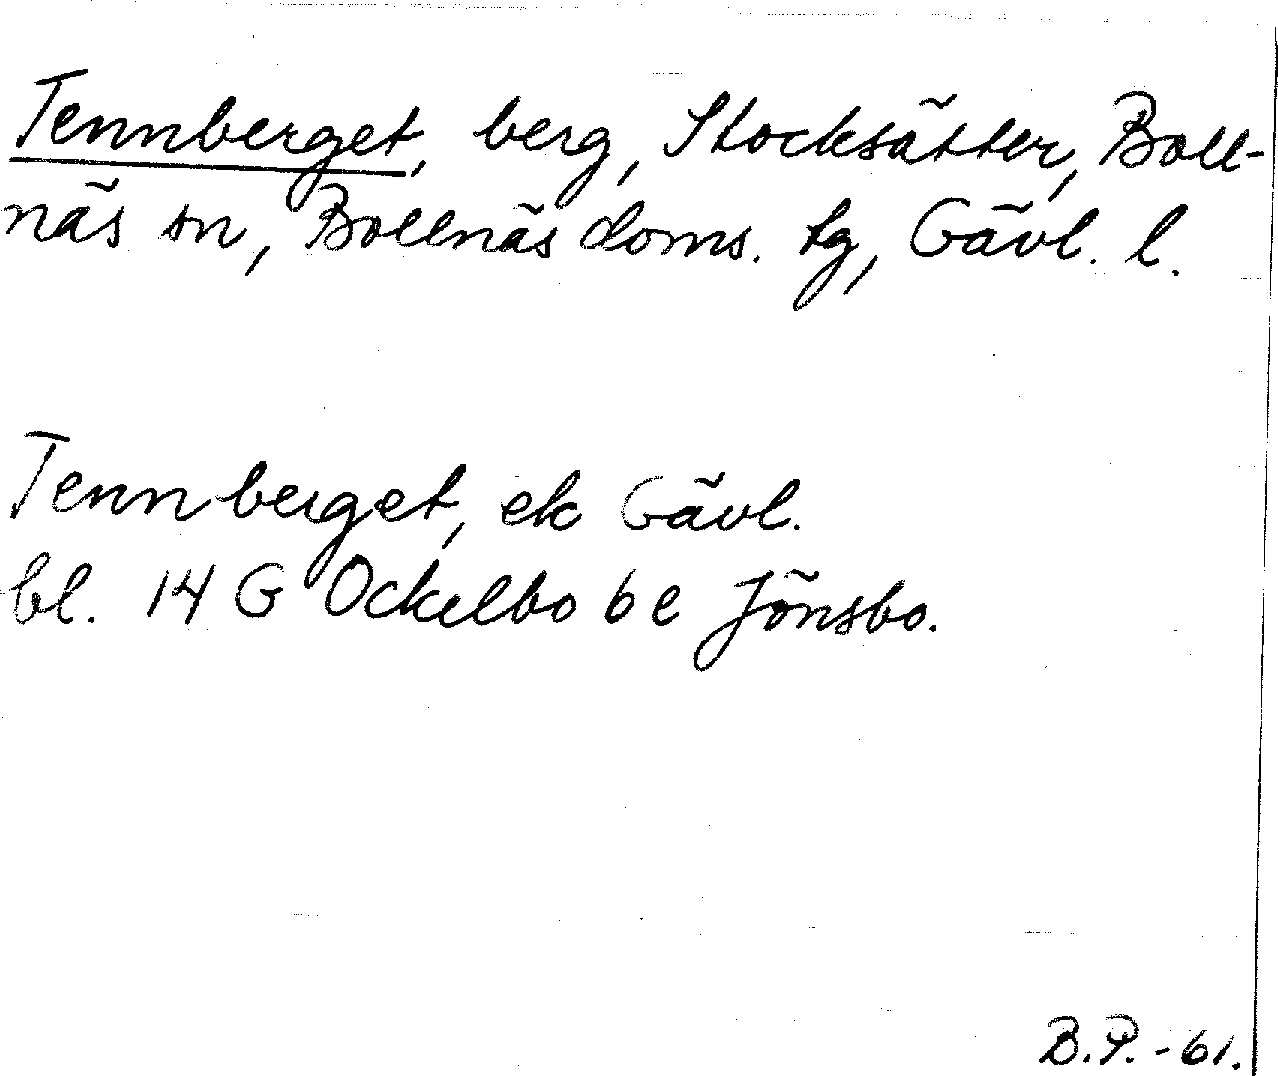 Tennberget, berg, Stocksätter, Boll-
näs sn, Bollnäs doms. tg, Gävl. l.
Tennberget, ek Gävl.
bl. 14 G Ockelbo 6 e Jönsbo.
B.P.-61.